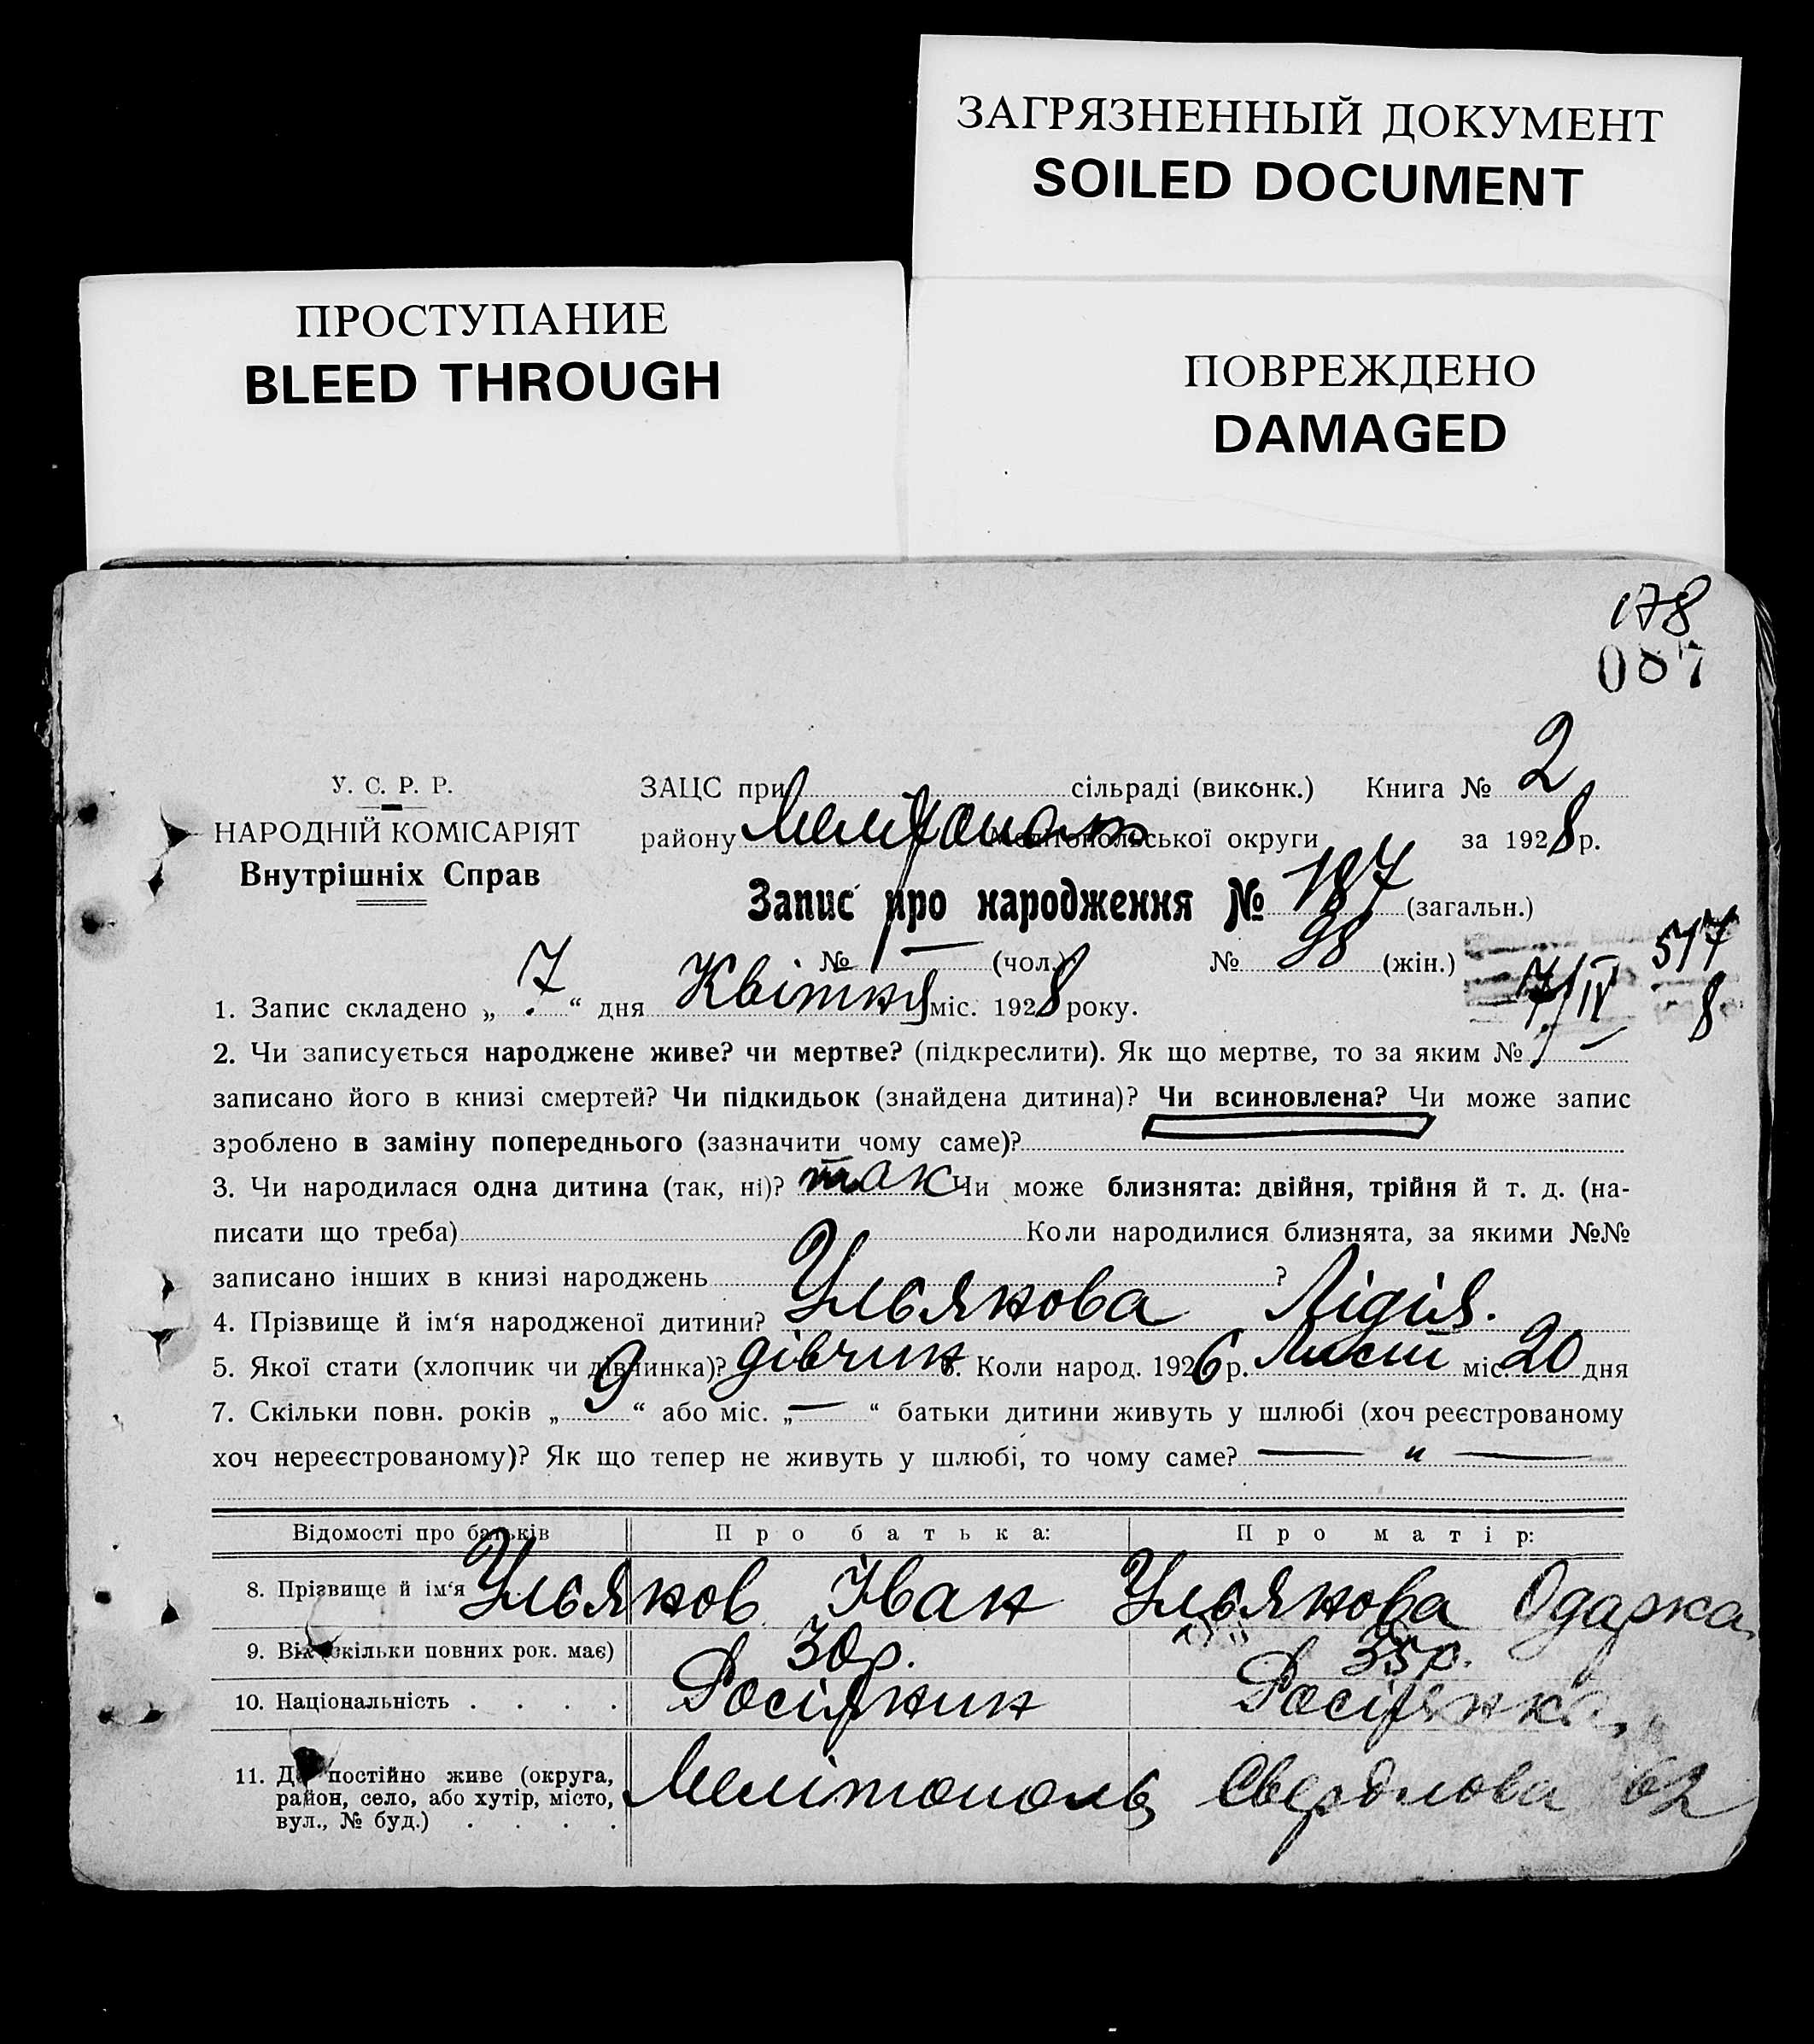 ЗАГРЯЗНЕННЫЙ ДОКУМЕНТ
SOILED DOCUMENT
ПРОСТУПАНИЕ
BLEED THROUGH
ПОВРЕЖДЕНО
DAMAGED
178
087
У. С. Р. Р.
НАРОДНІЙ КОМІСАРІЯТ
Внутрішніх Справ
ЗАЦС при сільраді (виконк.) Книга № 2
району Мелітополь Мелітопольської округи за 1928 р.
Запис про народження № 187 (загальн.)
№ — (чол.) № 98 (жін.)
517
7/IV 8
1. Запис складено „ 7 “ дня Квітня міс. 1928 року.
2. Чи записується народжене живе? чи мертве? (підкреслити). Як що мертве, то за яким №
записано його в книзі смертей? Чи підкидьок (знайдена дитина)? Чи всиновлена? Чи може запис
зроблено в заміну попереднього (зазначити чому саме)?
3. Чи народилася одна дитина (так, ні)? так Чи може близнята: двійня, трійня й т. д. (на-
писати що треба) Коли народилися близнята, за якими №№
записано інших в книзі народжень ?
4. Прізвище й ім‘я народженої дитини? Ульякова Лідія.
5. Якої стати (хлопчик чи дівчинка)? дівчин 6. Коли народ. 1926 р. Лист міс. 20 дня
7. Скільки повн. років „ 9 “ або міс. „ — “ батьки дитини живуть у шлюбі (хоч реєстрованому
хоч нереєстрованому)? Як що тепер не живуть у шлюбі, то чому саме? — „ —
Відомості про батьків Про батька: Про матір:
8. Прізвище й ім‘я Ульяков Іван Ульякова Одарка
9. Вік (скільки повних рок. має) 30 р. 35 р.
10. Національність . . . . Росіянин Росіянка
11. Де постійно живе (округа,
район, село, або хутір, місто,
вул., № буд.) . . . . Мелітополь Свердлова 62